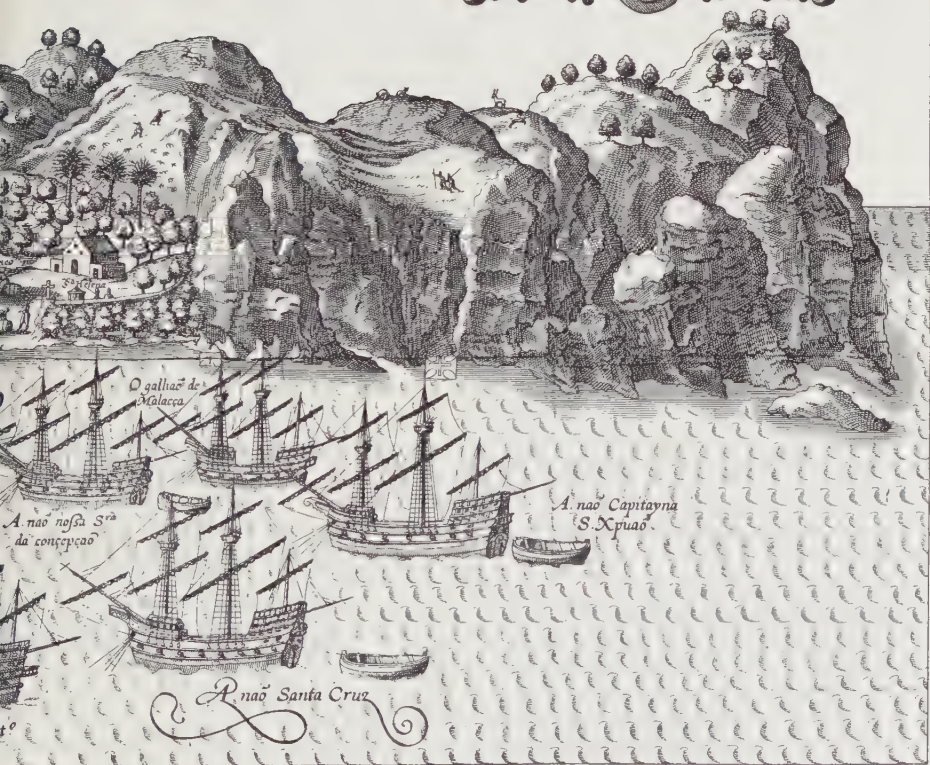 O galliaõ de
Malacca
A. naõ nossa S.ra
da conçepçaõ
A. naõ Capitayna
S. Xpuaõ
A. naõ Santa Cruz
t.º